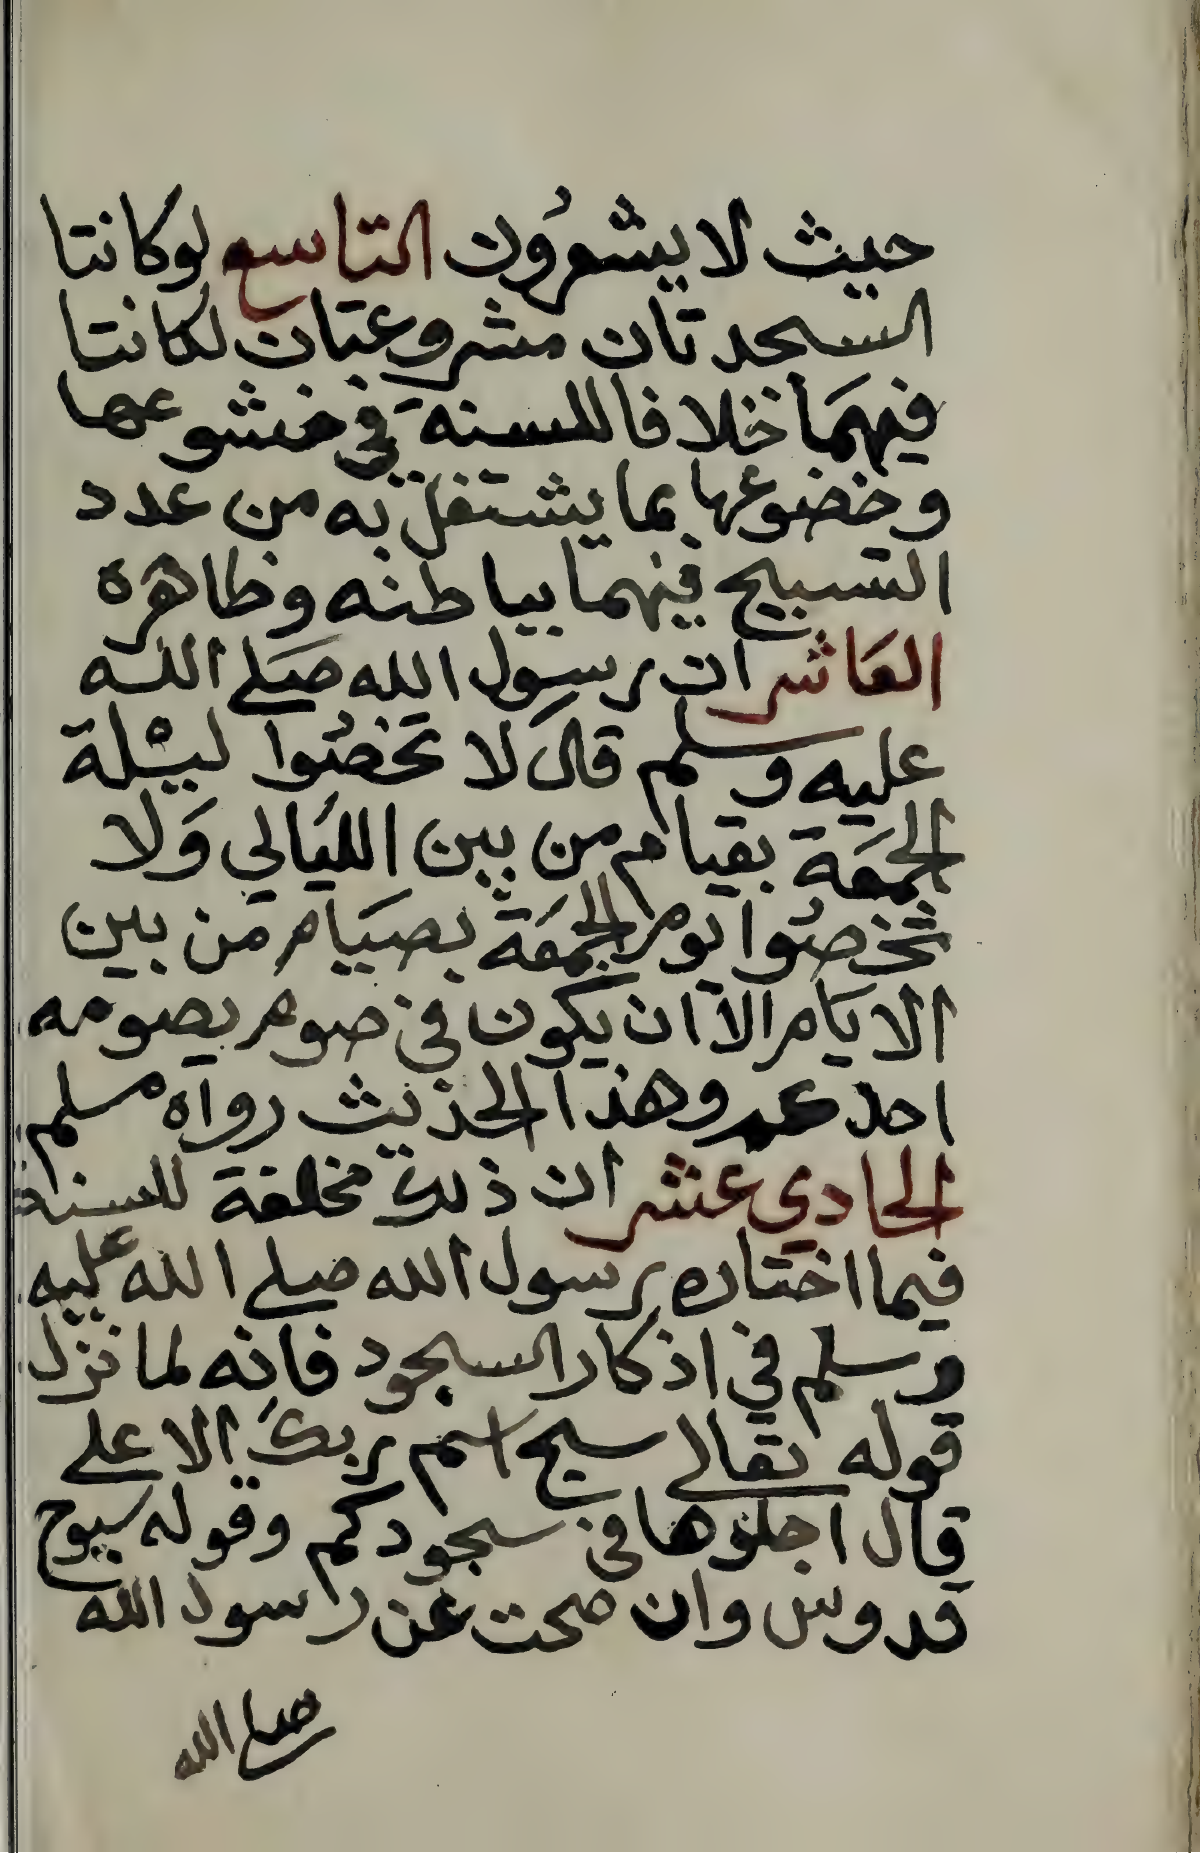 حيث لا يشعرُون التاسع لوكانتا
السجدتان مشروعتان لكانتا
فيهمَا خلافا للسنة في خشوعها
وخضوعها بما يشتغل به من عدد
التسبيح فيهما بباطنه وظاهره
العَاشر ان رسول الله صَلى الله
عليه وسلم قال لا تخصُوا ليْلة
الجمعَة بقيام من بين الليَالي وَلا
تخصُوا يوم الجمعَة بصيَام من بين
الايَام الا ان يكون في صوم يصومه
احدكم وهذا الحديث رواه مسلم
الحادي عشر ان ذلك مخلفة للسنة
فيما اختاره رسول الله صلى الله عليه
وسلم في اذكار السجود فانه لما نزل
قوله تعالى سبح اسم ربك الاعلى
قال اجلوها في سجودكم وقوله سبوح
قدوس وان صحت عن رسول الله
صلى الله